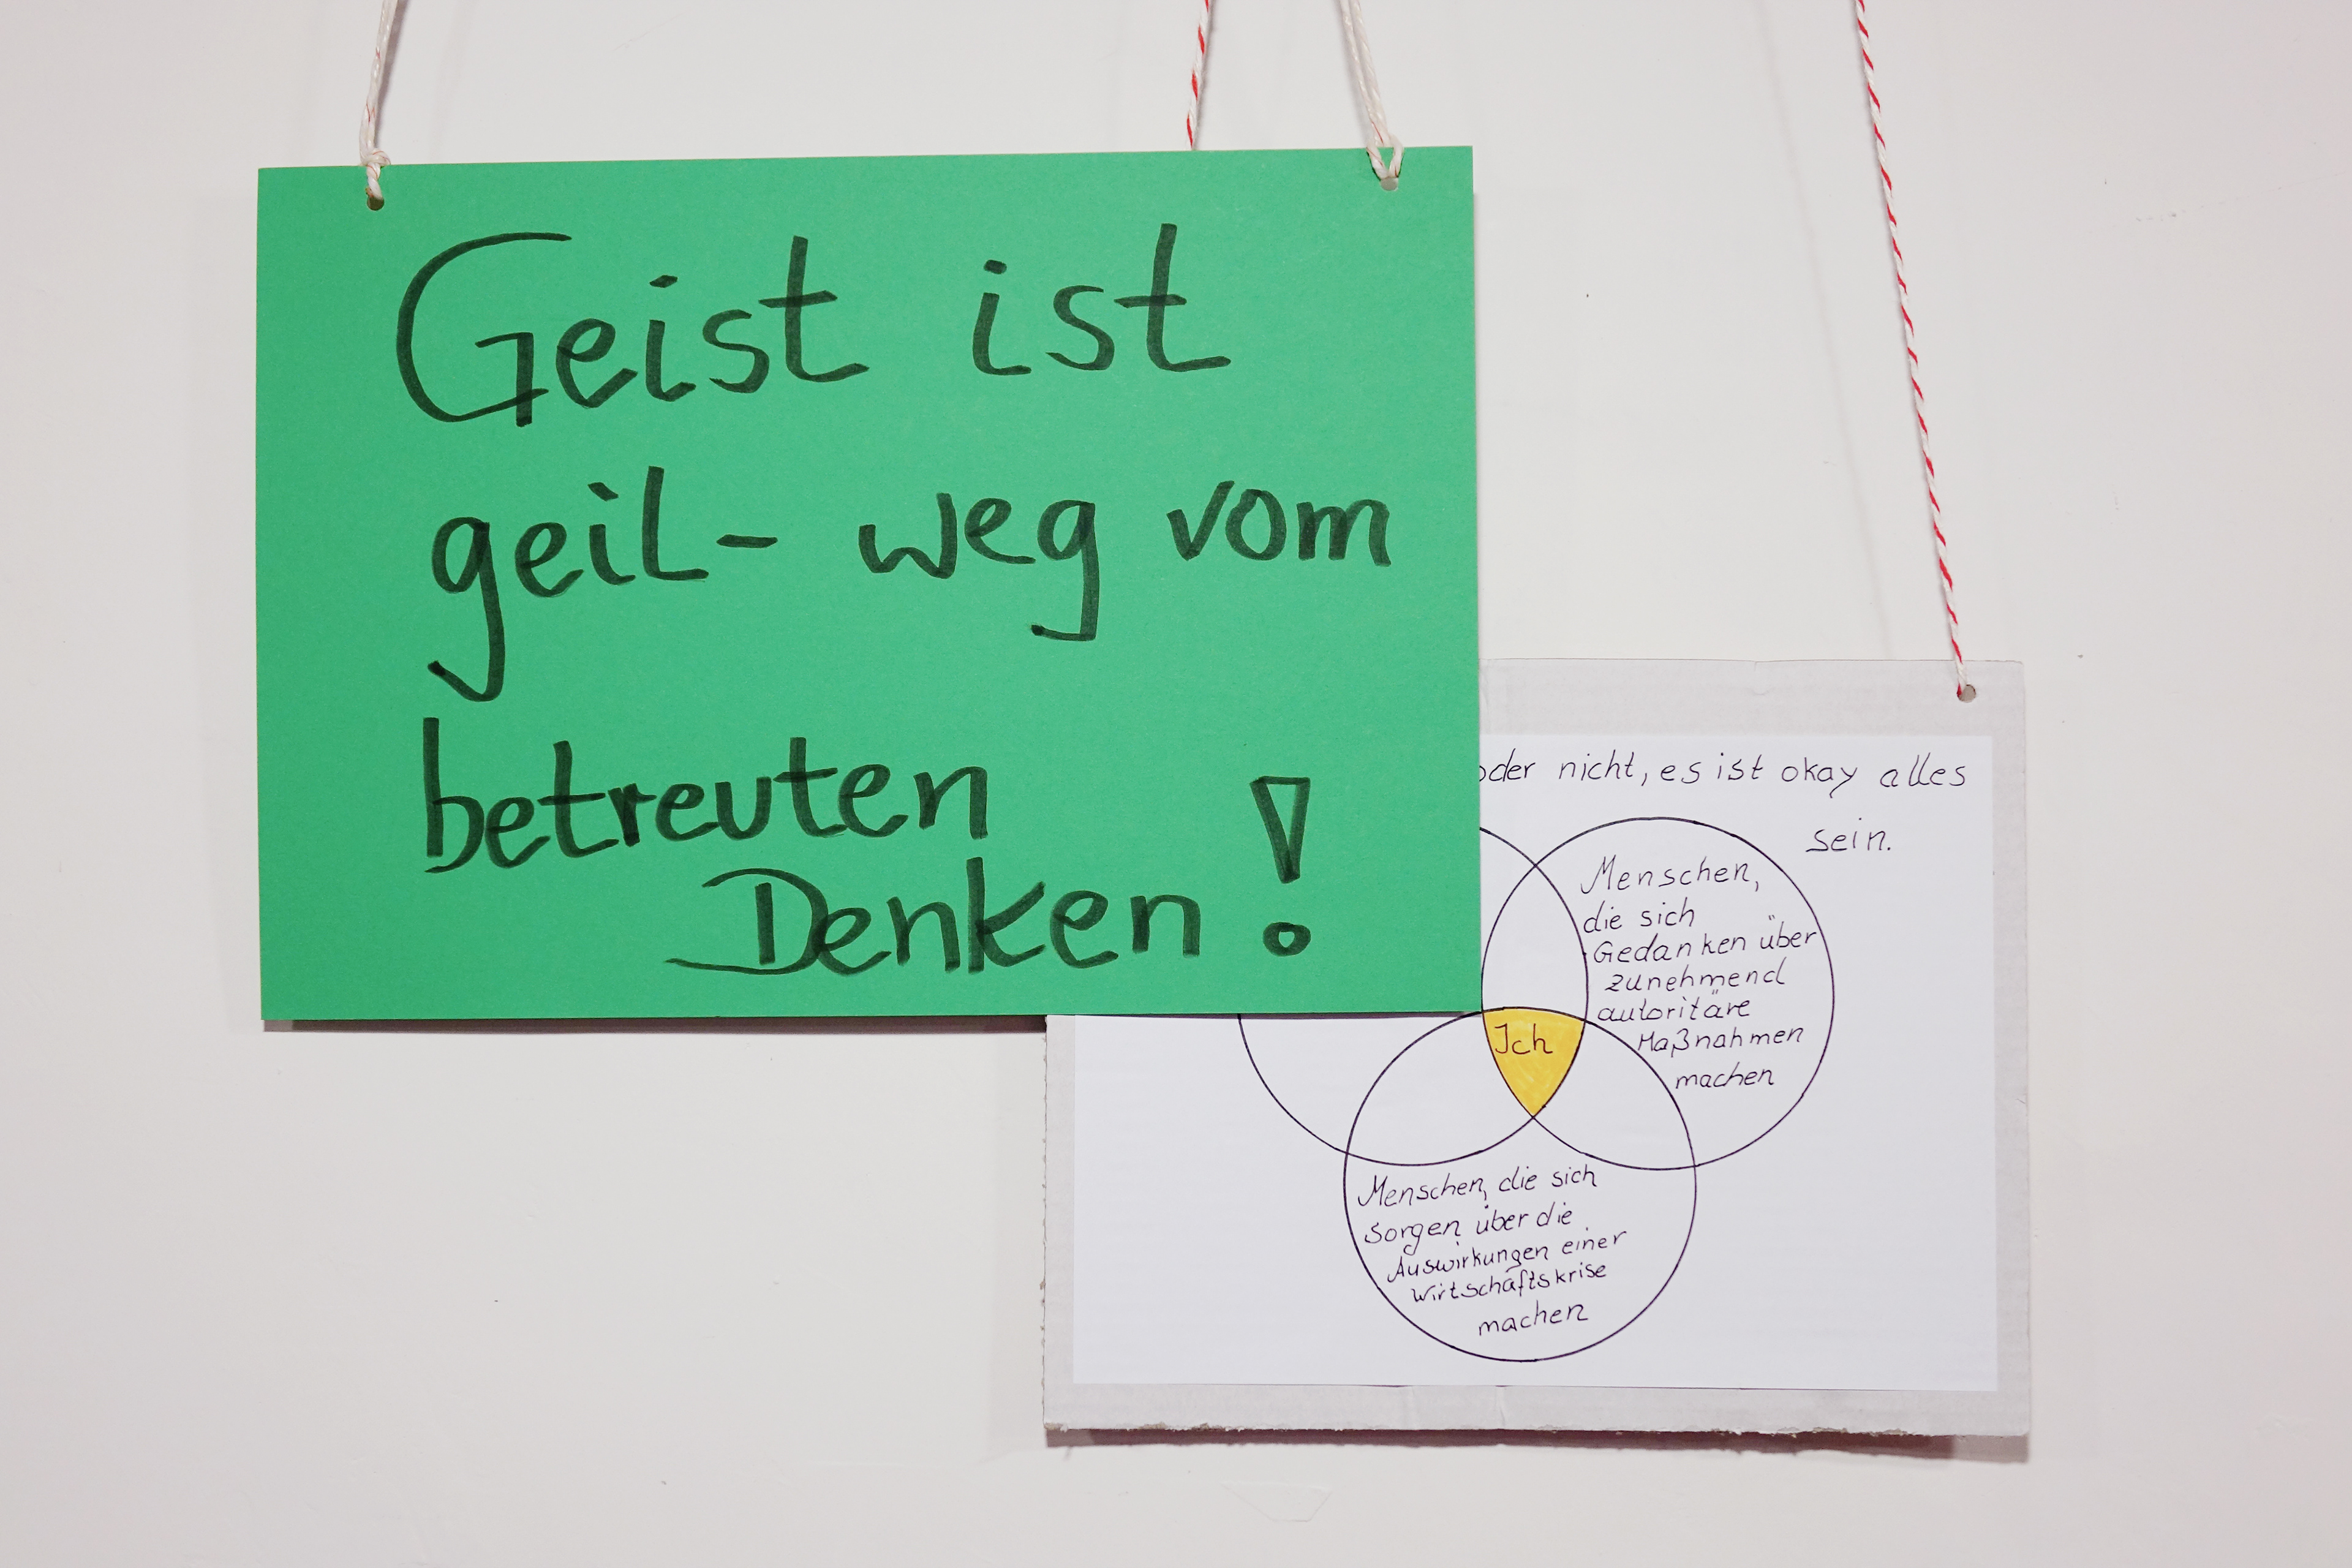 Geist ist
geil- weg vom
betreuten
Denken!
oder nicht, es ist okay alles
sein.
Menschen,
die sich
Gedanken über
zunehmend
autoritäre
Maßnahmen
machen
Ich
Menschen, die sich
sorgen über die
Auswirkungen einer
wirtschaftskrise
machen